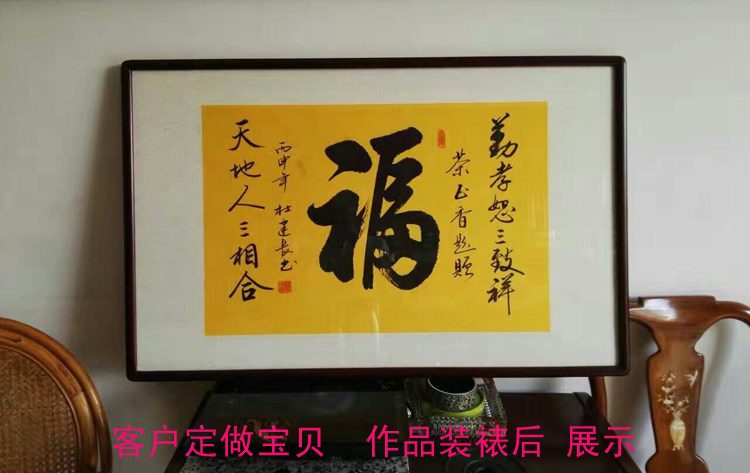 勤孝恕三致祥
茶正香题赠
福
丙申年 杜建长书
天地人三相合
客户定做宝贝 作品装裱后 展示